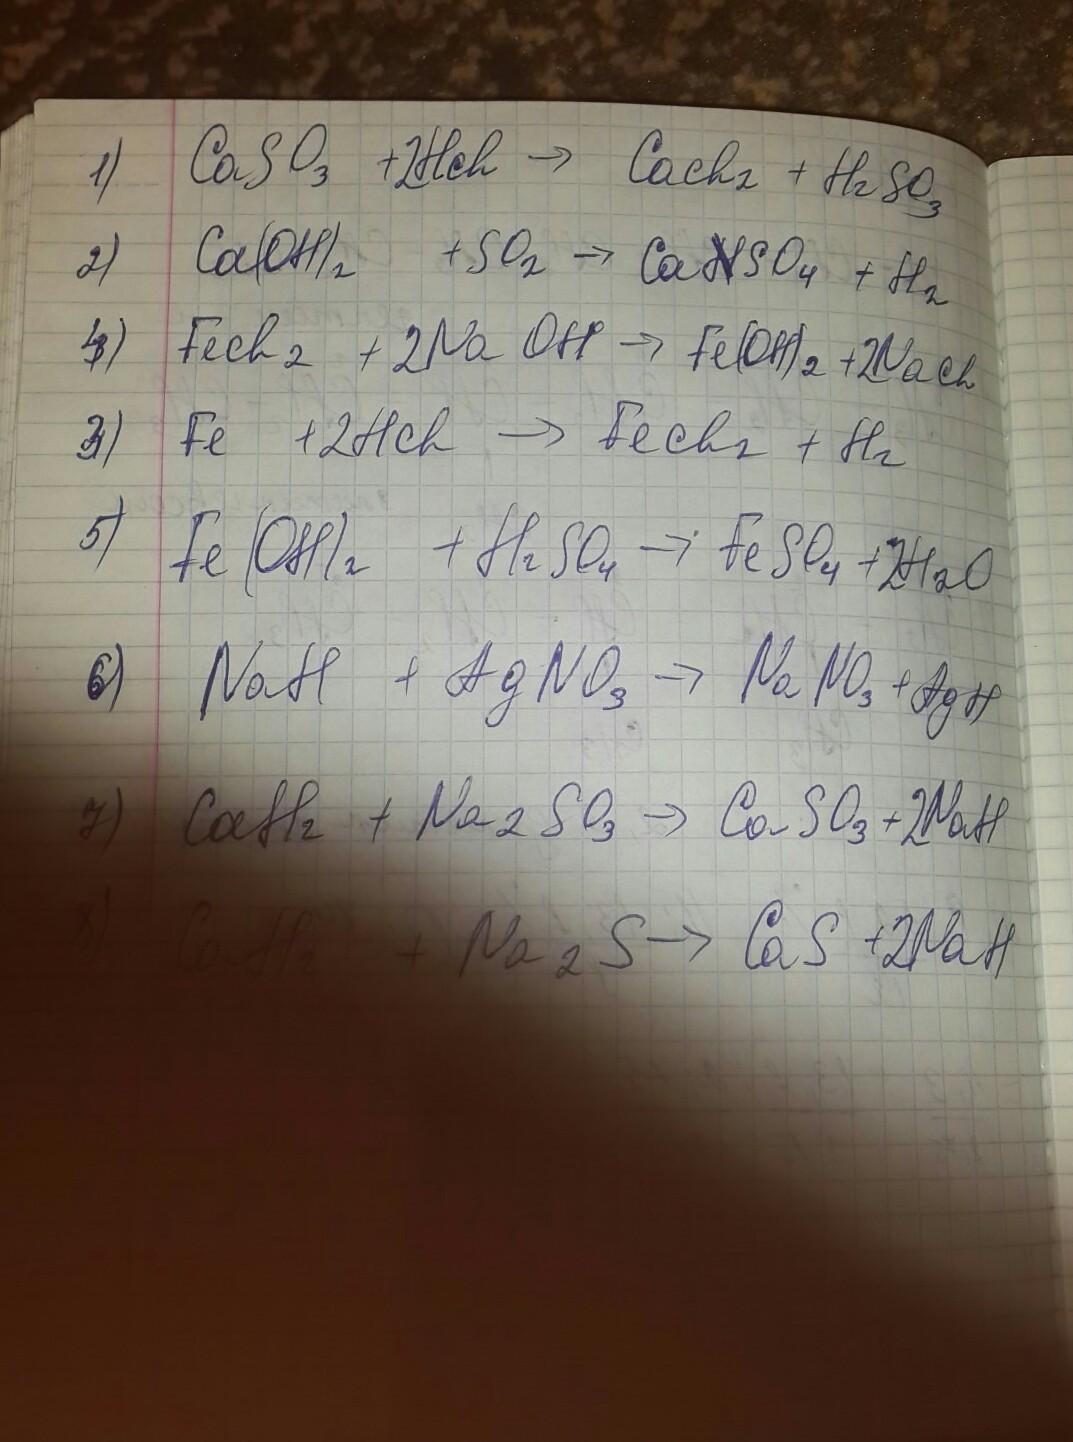 1) CaSO3 + 2HCl → CaCl2 + H2SO3
2) Ca(OH)2 + SO2 → CaSO4 + H2
4) FeCl2 + 2NaOH → Fe(OH)2 + 2NaCl
3) Fe + 2HCl → FeCl2 + H2
5) Fe(OH)2 + H2SO4 → FeSO4 + 2H2O
6) NaH + AgNO3 → NaNO3 + AgH
7) CaH2 + Na2SO3 → CaSO3 + 2NaH
8) CaH2 + Na2S → CaS + 2NaH